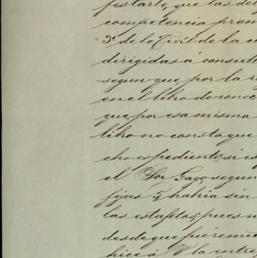 festarle, que las de
competencia prom
3º de lo Civil de la c
dirigidas á consult
segun que, por la r
en el libro de conoc
que por esa misma
libro no consta que
cho espediente, si es
el Sor Lago, segun
fojas 5, habria sin
las estafetas, pues n
desde que pieremi
hice á V la entre